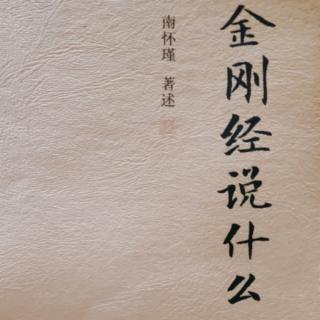 金刚经说什么
南怀瑾 著述